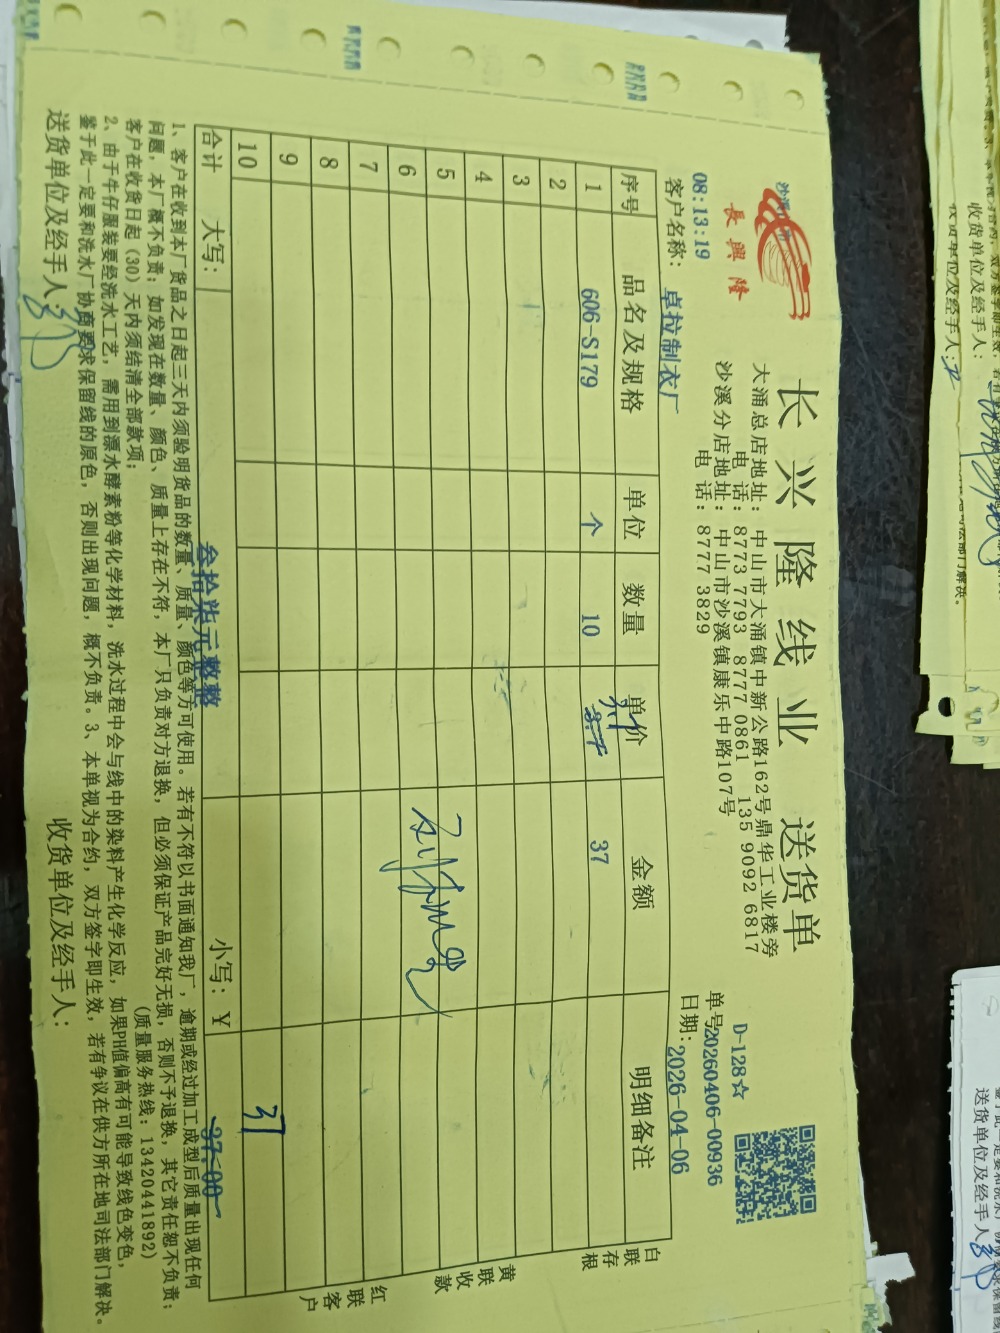 長興隆
长兴隆线业 送货单
大涌总店地址：中山市大涌镇中新公路162号鼎华工业楼旁
电话：8773 7793 8777 0861 135 9092 6817
沙溪分店地址：中山市沙溪镇康乐中路107号
电话：8777 3829
D-128☆
单号20260406-00936
08:13:19
日期：2026-04-06
客户名称：卓拉制衣厂
序号 品名及规格 单位 数量 单价 金额 明细备注
1 606-S179 个 10 3.7 37
2
3
4
5
6
7
8
9
10
31
合计 大写：叁拾柒元整整 小写：￥ 37.00
白联存根
黄联收款
红联客户
1、客户在收到本厂货品之日起三天内须验明货品的数量、质量、颜色等方可使用。若有不符以书面通知我厂，逾期或经过加工成型后质量出现任何
问题，本厂概不负责；如发现在数量、颜色、质量上存在不符，本厂只负责对方退换，但必须保证产品完好无损，否则不予退换，其它责任恕不负责；
客户在收货日起（30）天内须结清全部款项； （质量服务热线：13420441892）
2、由于牛仔服装要经洗水工艺，需用到漂水酵素粉等化学材料，洗水过程中会与线中的染料产生化学反应，如果PH值偏高有可能导致线色变色，
鉴于此一定要和洗水厂协商要求保留线的原色，否则出现问题，概不负责。3、本单视为合约，双方签字即生效，若有争议在供方所在地司法部门解决。
送货单位及经手人： 收货单位及经手人：
收货单位及经手人：
送货单位及经手人